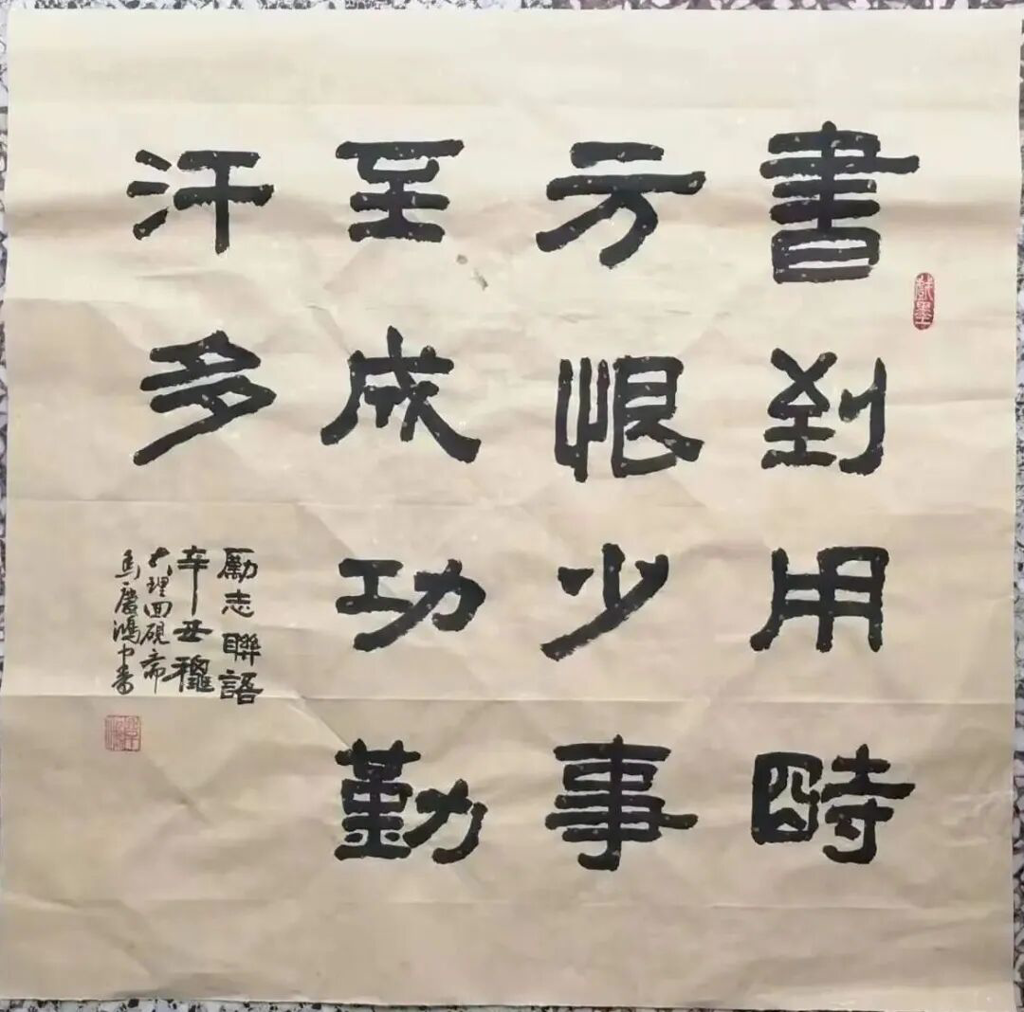 書到用時
方恨少事
至成功勤
汗多
勵志聯語
辛丑穐
大理回硯斎
馬慶鴻中書